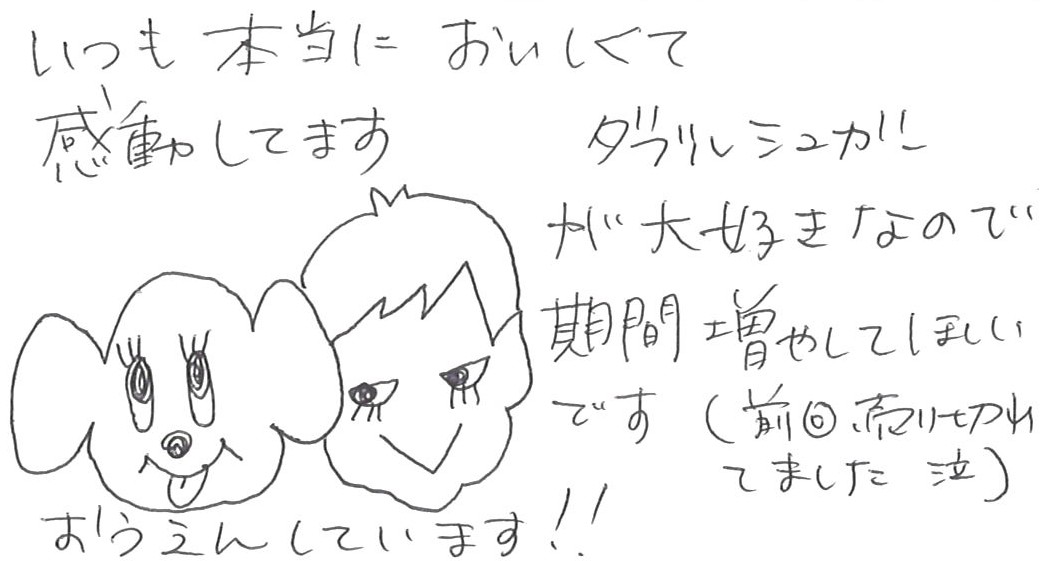 いつも 本当に おいしくて
感動してます
ダブルシュガー
が大好きなので
期間 増やしてほしい
です（前回 売り切れ
てました 泣）
おうえんしています!!